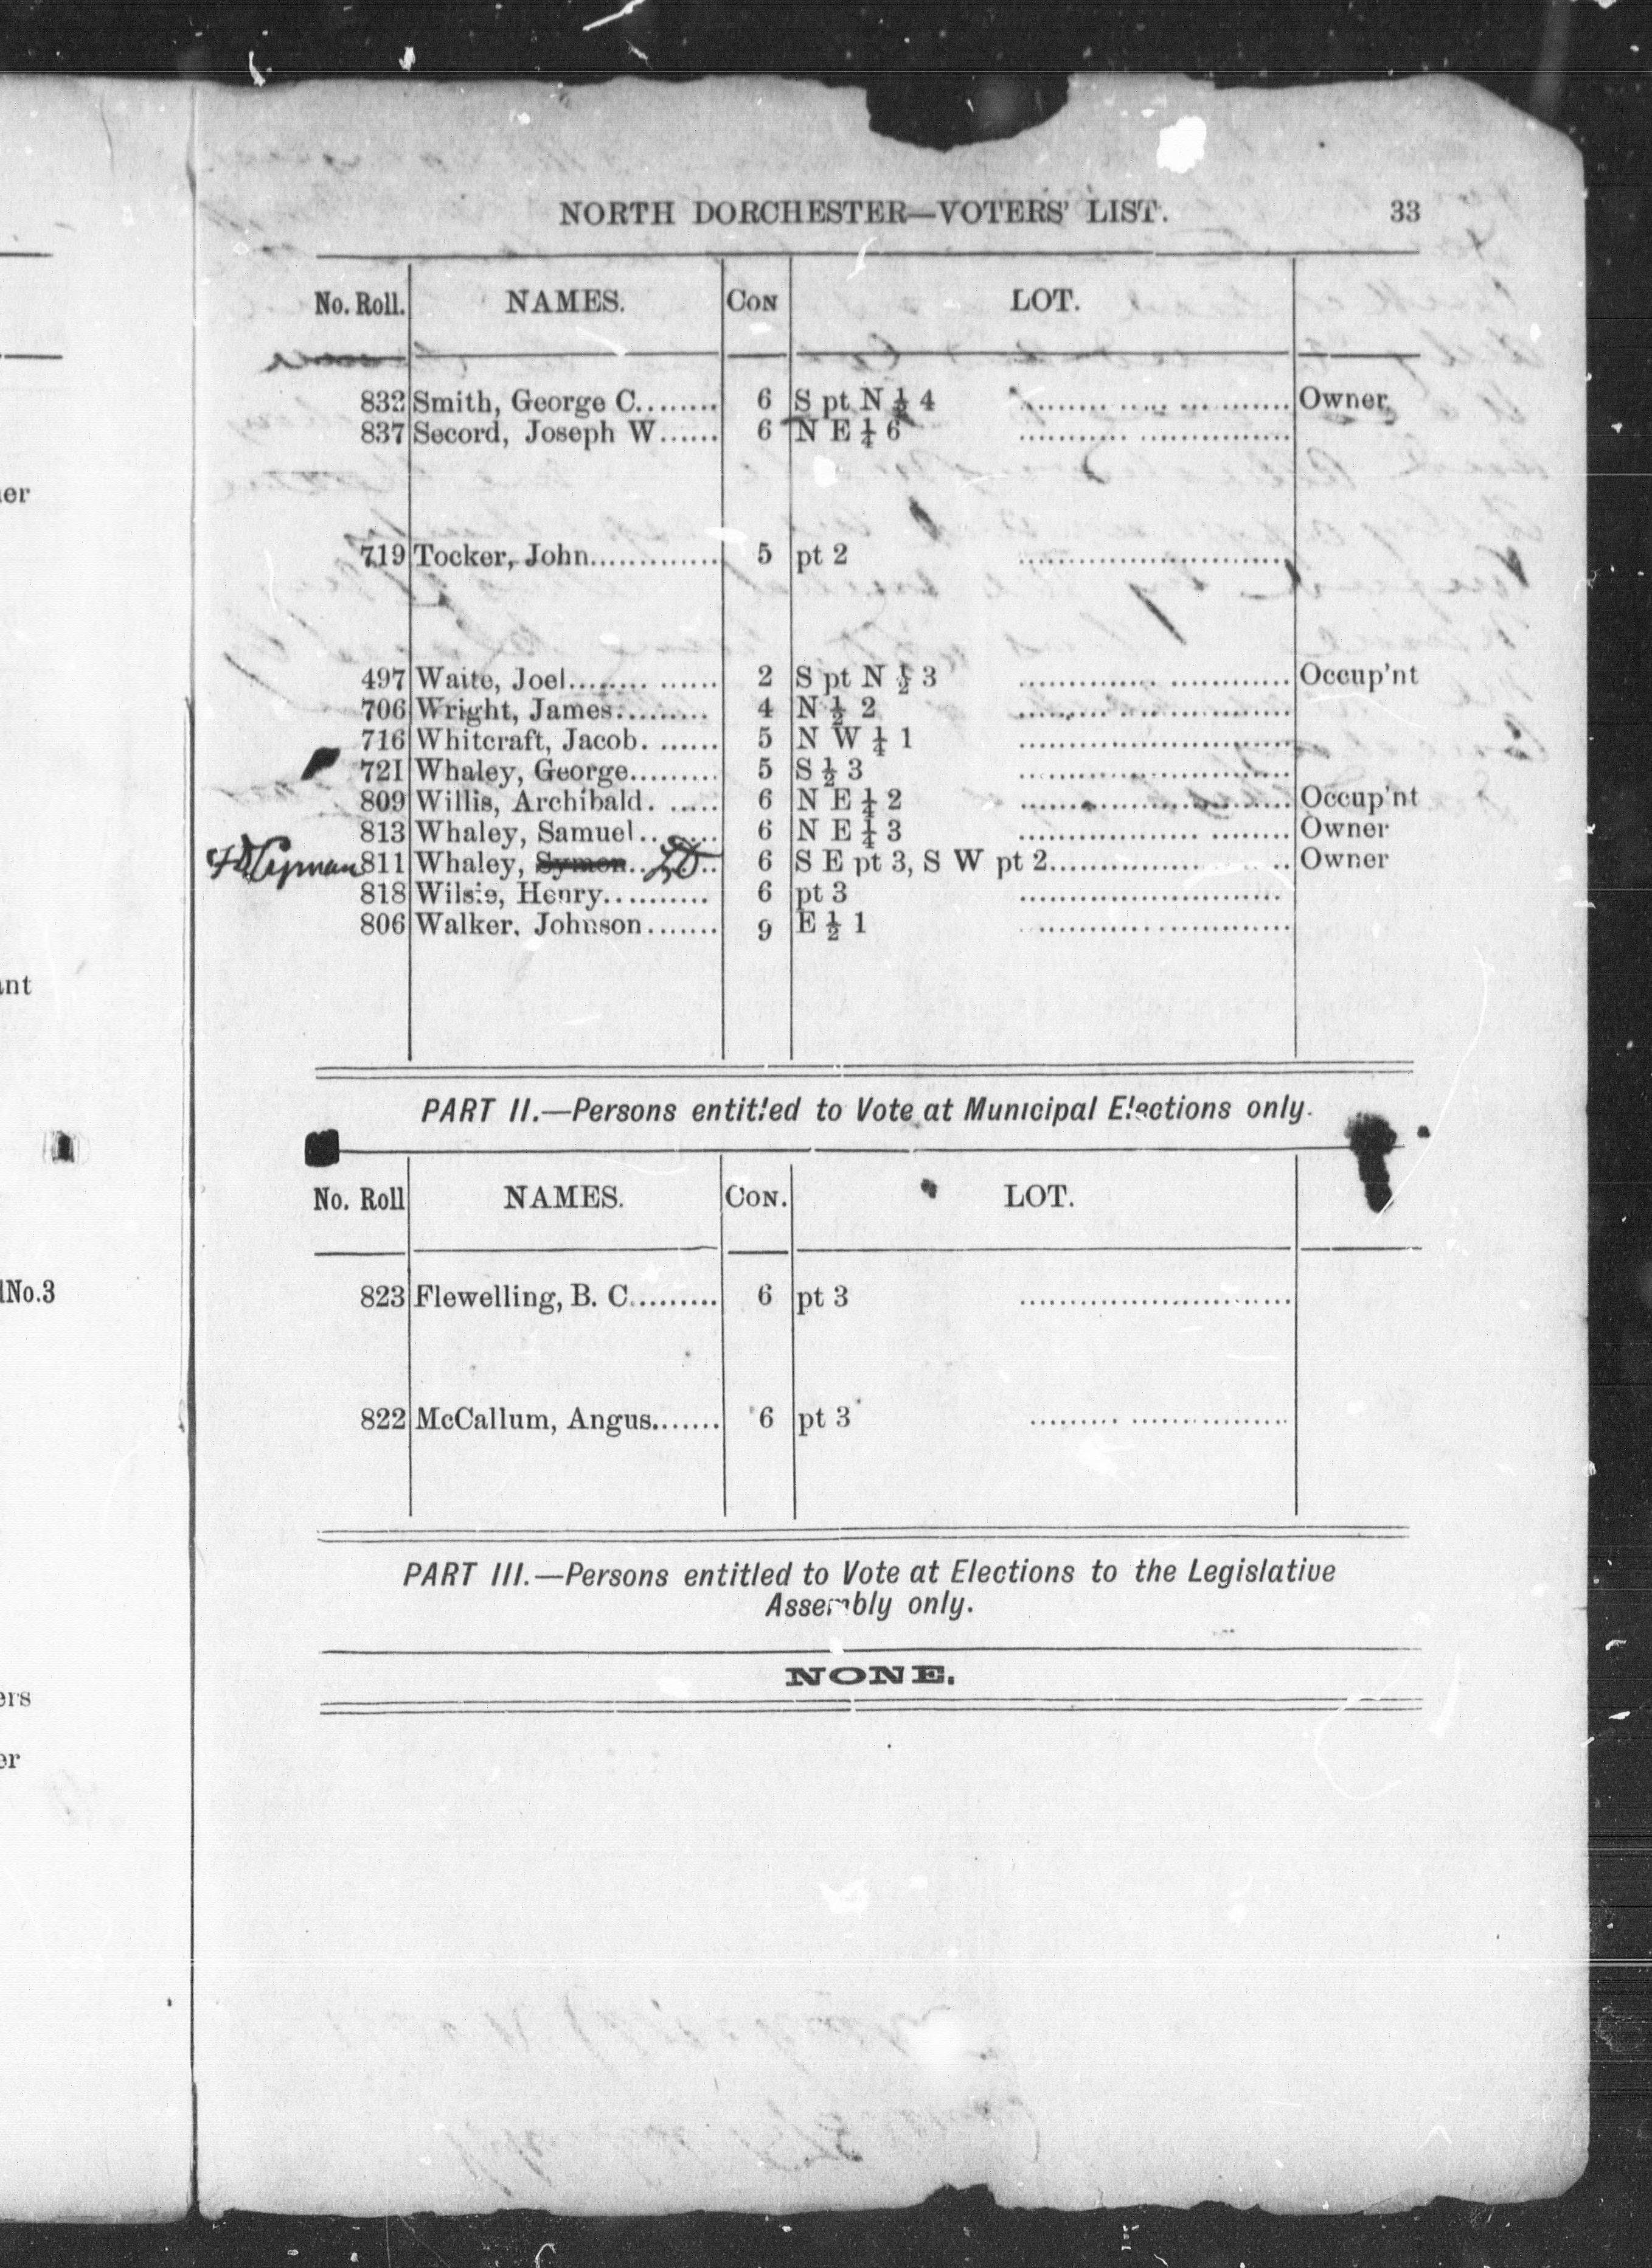 NORTH DORCHESTER—VOTERS' LIST. 33
No. Roll. NAMES. CON LOT.
832 Smith, George C........ 6 S pt N ½ 4 ........................ Owner
837 Secord, Joseph W...... 6 N E ¼ 6 ........................
719 Tocker, John............. 5 pt 2 ........................
497 Waite, Joel........ ...... 2 S pt N ½ 3 ........................ Occup'nt
706 Wright, James.......... 4 N ½ 2 ........................
716 Whitcraft, Jacob. ...... 5 N W ¼ 1 ........................
721 Whaley, George......... 5 S ½ 3 ........................
809 Willis, Archibald. ..... 6 N E ¼ 2 ........................ Occup'nt
813 Whaley, Samuel........ 6 N E ¼ 3 ........................ Owner
811 Whaley, Symon........ 6 S E pt 3, S W pt 2........................ Owner
818 Wilsie, Henry........... 6 pt 3 ........................
806 Walker, Johnson....... 9 E ½ 1 ........................
PART II.—Persons entitled to Vote at Municipal Elections only.
No. Roll NAMES. CON. LOT.
823 Flewelling, B. C......... 6 pt 3 ........................
822 McCallum, Angus....... 6 pt 3 ........................
PART III.—Persons entitled to Vote at Elections to the Legislative
Assembly only.
NONE.
er
ant
No.3
ers
er